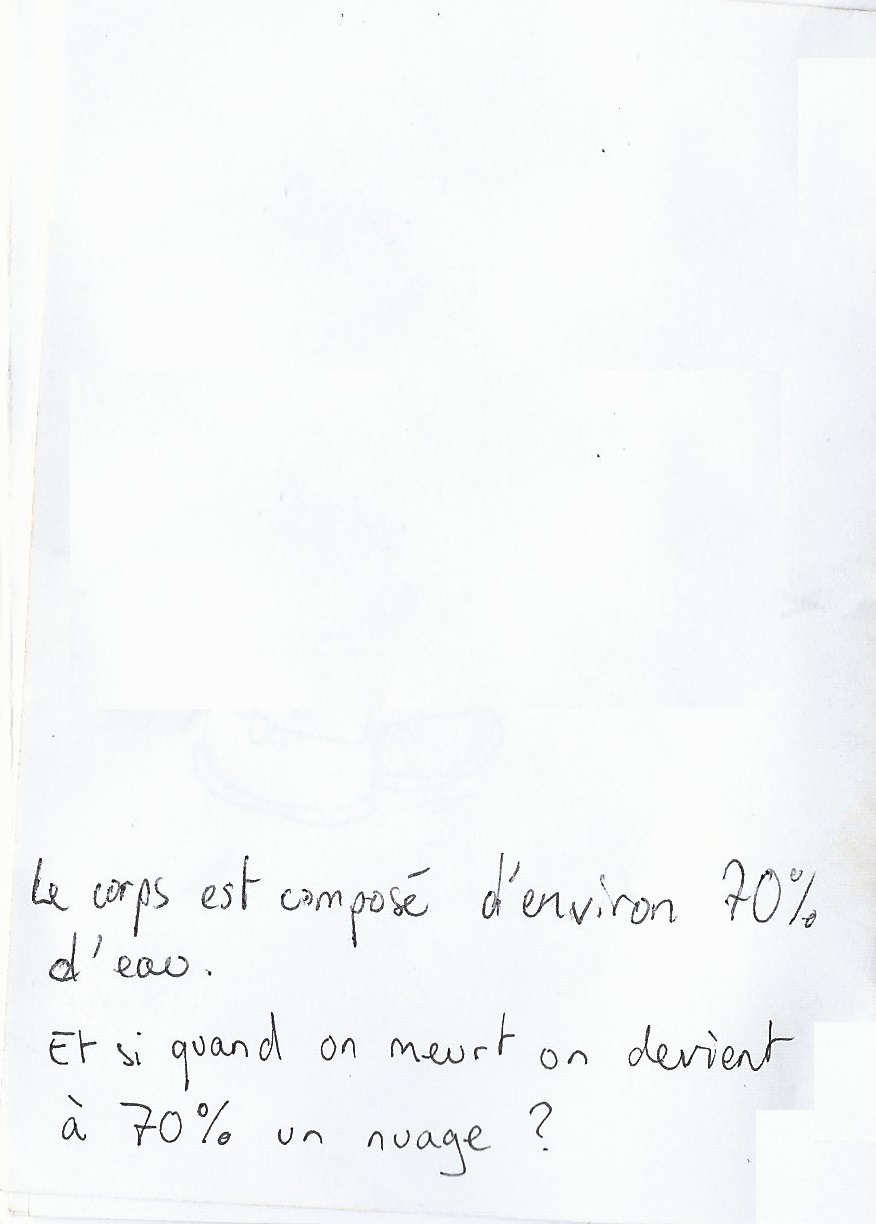 Le corps est composé d'environ 70%
d'eau.
Et si quand on meurt on devient
à 70% un nuage ?